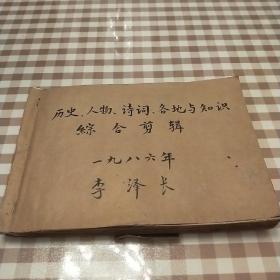 历史、人物、诗词、各地与知识
綜合剪辑
一九八六年
李泽长